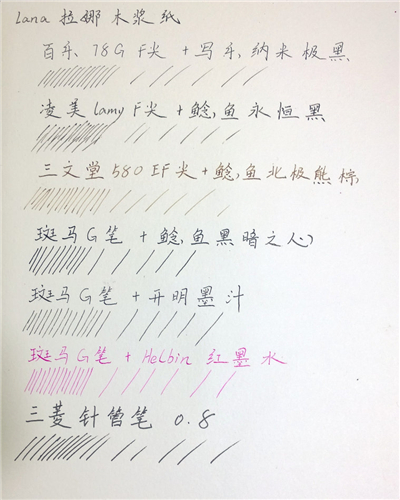 Lana 拉娜木浆纸
百乐 78G F尖 + 写乐,纳米极黑
凌美 lamy F尖 + 鲶,鱼永恒黑
三文堂 580 EF尖 + 鲶,鱼北极熊棕,
斑马G笔 + 鲶,鱼黑暗之心
斑马G笔 + 开明墨汁
斑马G笔 + Helbin 红墨水
三菱针管笔 0.8